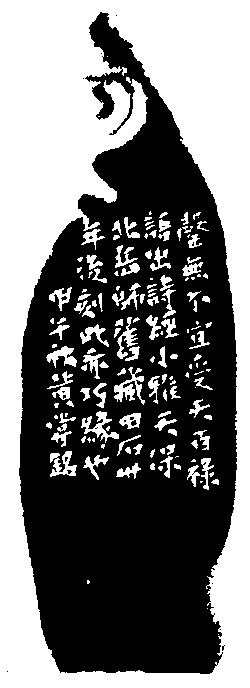 罄無不宜受天百祿
語出詩經小雅天保
北岳師舊藏田石卅
年後刻此亦巧緣也
甲午秋黃嘗銘